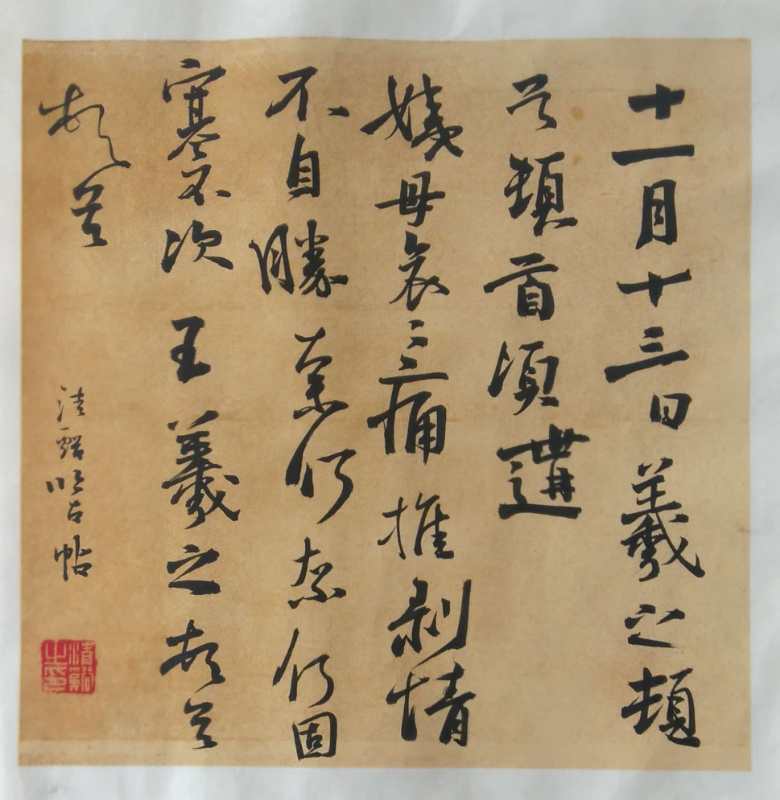 十一月十三日羲之頓
首頓首頃遘
姨母哀〻痛摧剝情
不自勝奈何奈何因
塞不次 王羲之頓首
頓首
清谿临古帖